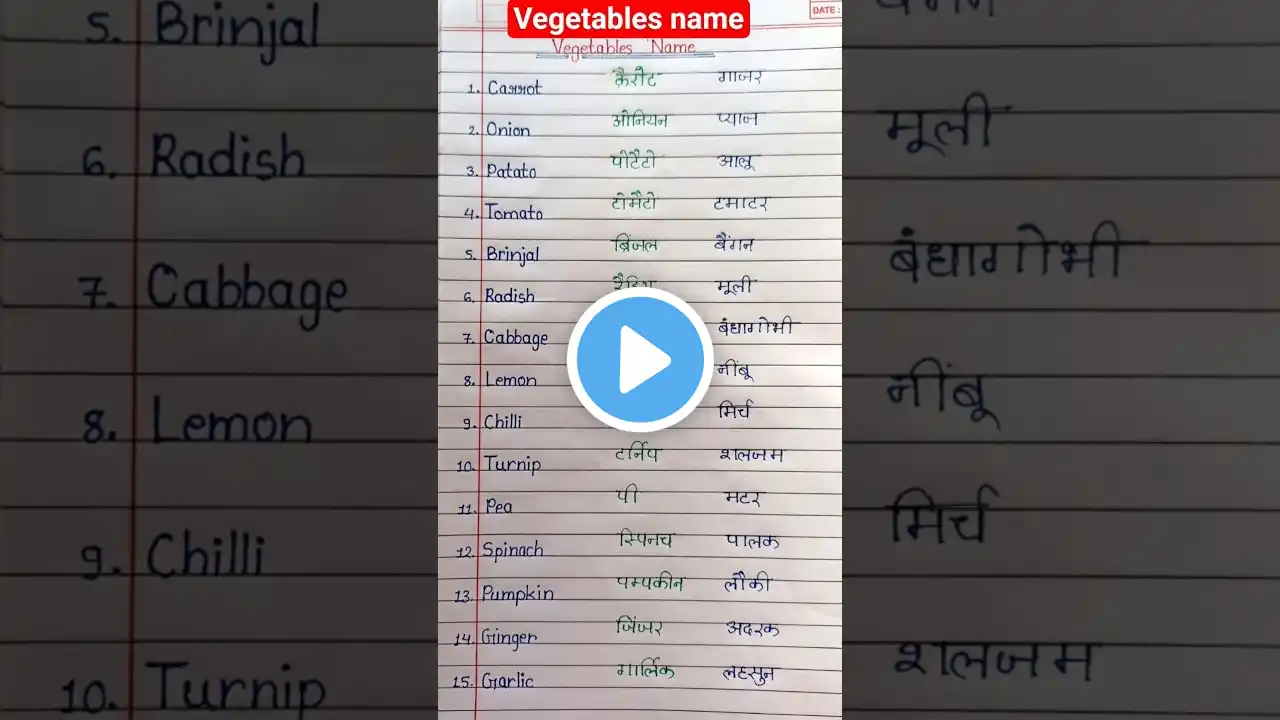 Vegetables name
DATE:
Vegetables Name
1. Carrot कैरौट गाजर
2. Onion ओनियन प्याज
3. Patato पोटैटो आलू
4. Tomato टोमैटो टमाटर
5. Brinjal ब्रिंजल बैंगन
6. Radish मूली
7. Cabbage बंधागोभी
8. Lemon नींबू
9. Chilli मिर्च
10. Turnip टर्निप शलजम
11. Pea पी मटर
12. Spinach स्पिनच पालक
13. Pumpkin पम्पकीन लौकी
14. Ginger जिंजर अदरक
15. Garlic गार्लिक लहसुन
5. Brinjal
6. Radish मूली
7. Cabbage बंधागोभी
8. Lemon नींबू
9. Chilli मिर्च
10. Turnip शलजम